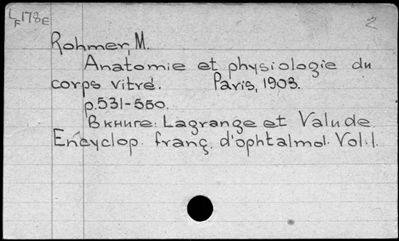 LF178E
2
Rohmer, M.
Anatomie et physiologie du
corps vitré. Paris, 1903.
p.531-550.
Вкниге: Lagrange et Valude
Encyclop. franç. d'ophtalmol. Vol.1.